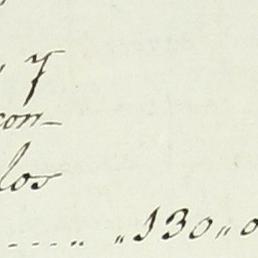 7
con-
los
..... „130„0